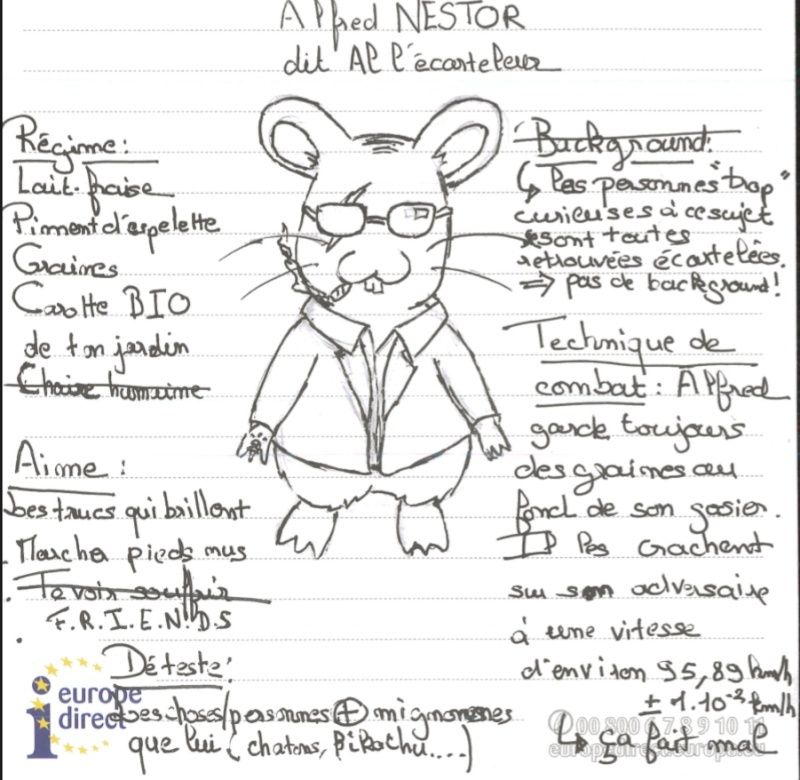 Alfred NESTOR
dit Al l'écarteleur
Régime:
Lait-fraise
Piment d'espelette
Graines
Carotte BIO
de ton jardin
Chaire humaine
Aime:
Les trucs qui brillent
- Marcher pieds nus
. Te voir souffrir
F.R.I.E.N.D.S
.
Déteste:
Les choses/personnes + mignonnes
que lui (chatons, Pikachu....)
Background:
↳ Les personnes "trop"
curieuses à ce sujet
sont toutes
retrouvées écartelées.
⇒ pas de background!
Technique de
combat: Alfred
garde toujours
des graines au
fond de son gosier.
Il les crachent
sur son adversaire
à une vitesse
d'environ 95,89 km/h
± 1.10⁻² km/h
↳ ça fait mal
i europe
direct
00 800 6 7 8 9 10 11
europedirect.europa.eu